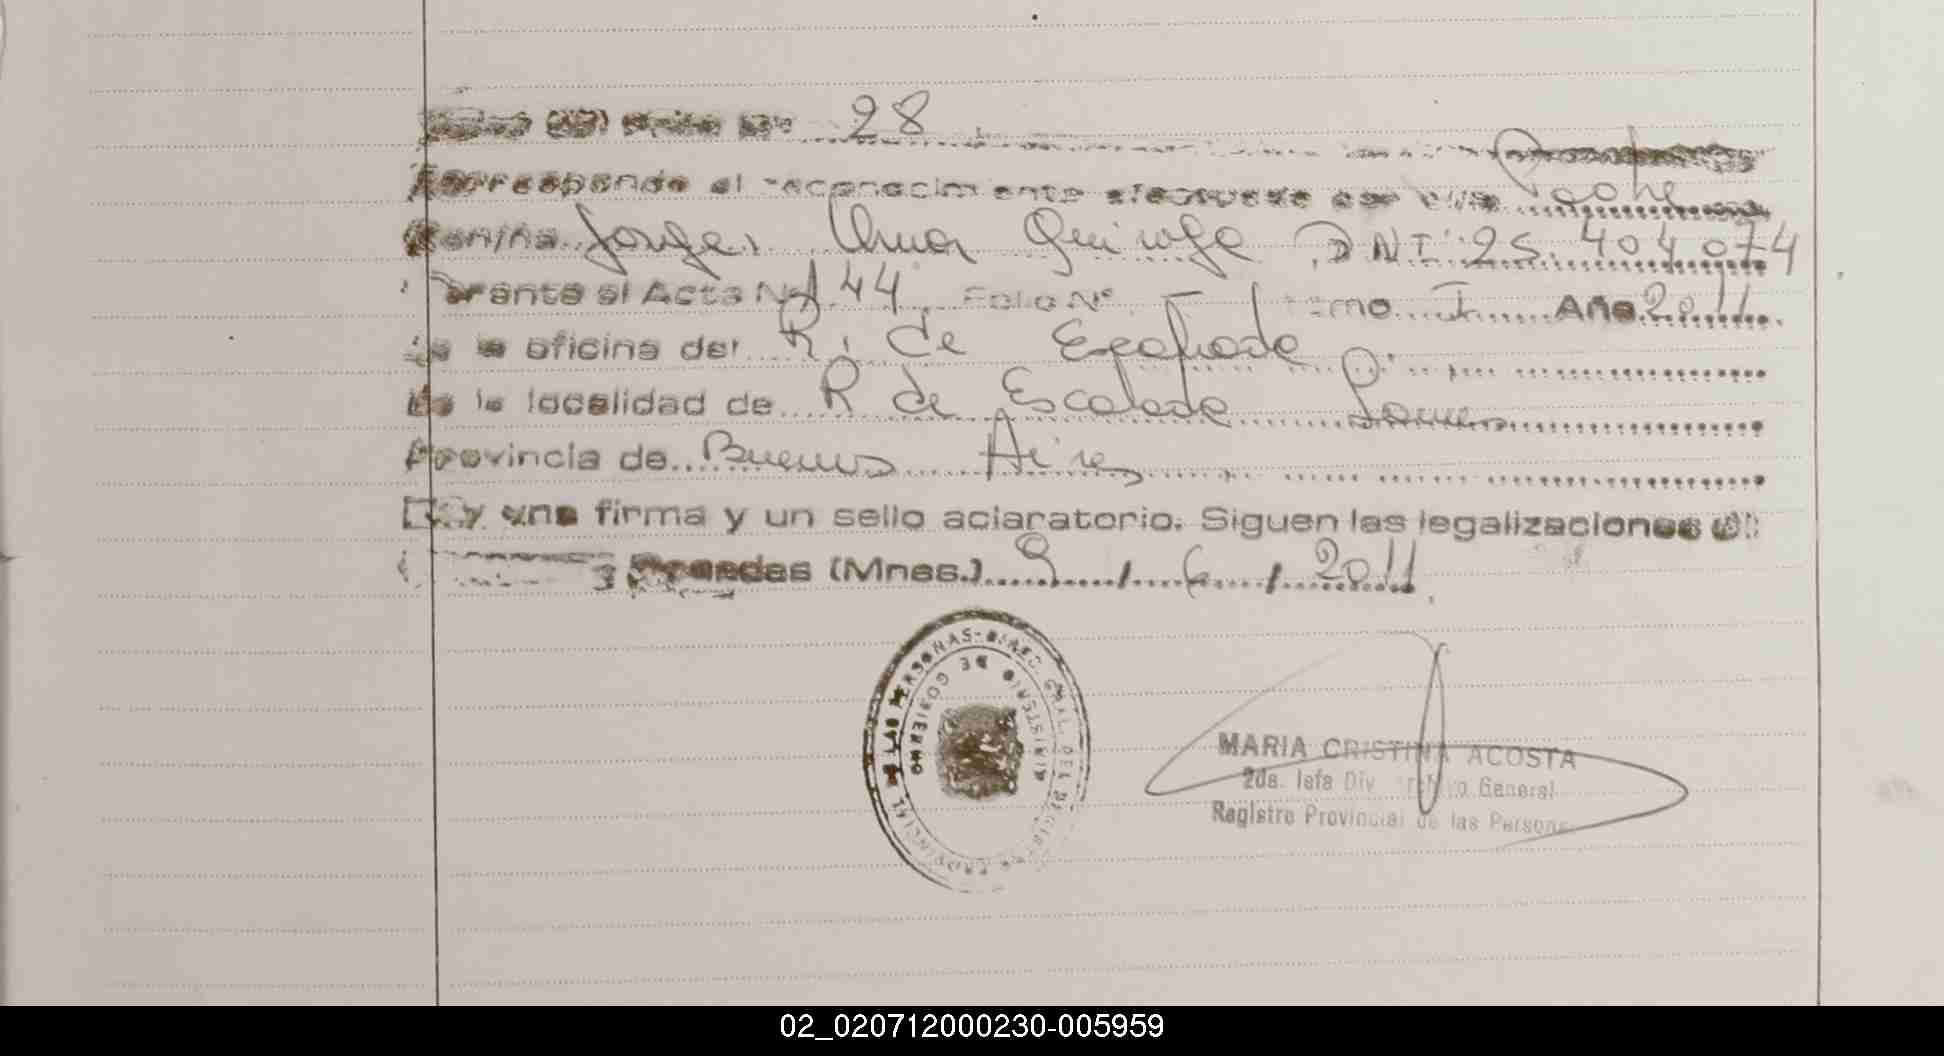 28
Corresponde al reconocimiento efectuado por el/la Padre
Jorge Omar Quiroga DNI 25.404.074
Obrante al Acta Nº 144 Folio Nº - Tomo I Año 2011
de la oficina del R. de Escalada
de la localidad de R de Escalada Lanus
Provincia de Buenos Aires
Hay una firma y un sello aclaratorio. Siguen las legalizaciones
Posadas (Mnes.) 9 / 6 / 2011
MINISTERIO DE GOBIERNO
MARIA CRISTINA ACOSTA
2da. Jefa Div. Archivo General
Registro Provincial de las Personas
02_020712000230-005959